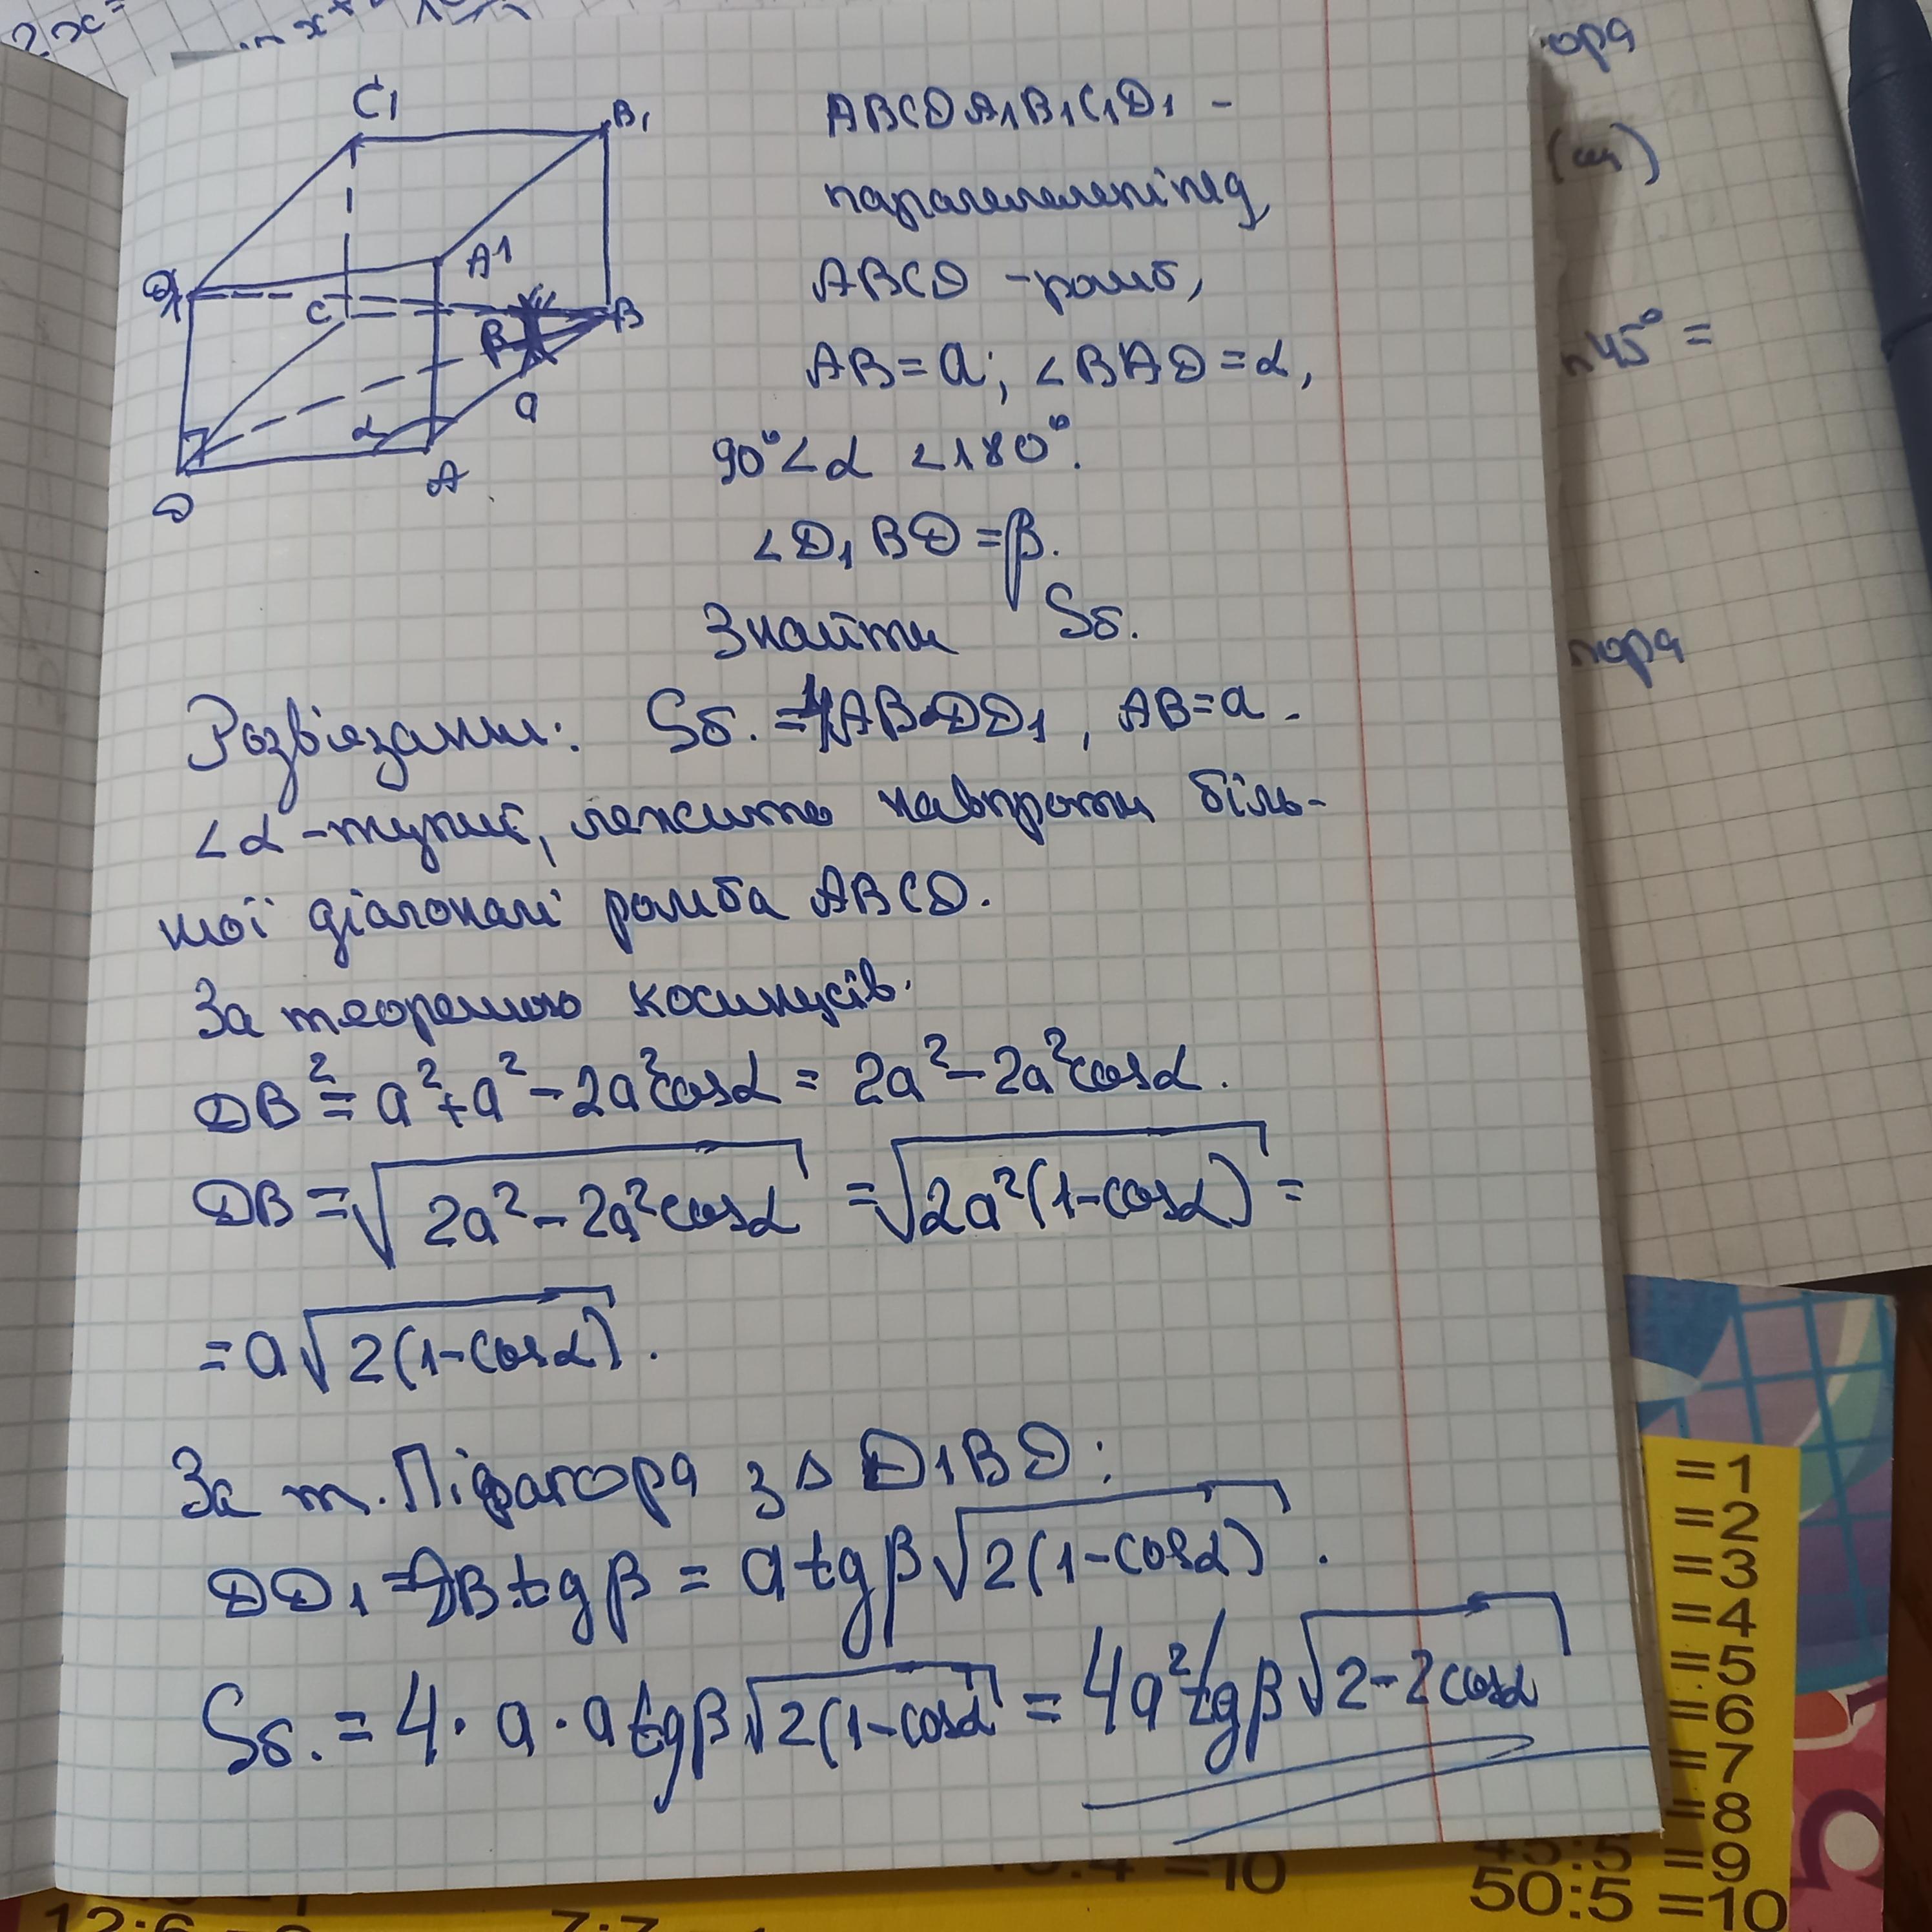 2x=
C1
B1
ABCDA1B1C1D1 -
паралелепіпед,
ABCD - ромб,
AB = a; ∠BAD = α,
90° < α < 180°.
∠D1BD = β.
Знайти Sб.
A1
C
B
β
a
α
A
D
Розв'язання: Sб. = 4AB·DD1, AB = a.
∠α - тупий, лежить навпроти біль-
шої діагоналі ромба ABCD.
За теоремою косинусів.
DB² = a² + a² - 2a²cosα = 2a² - 2a²cosα.
DB = √(2a² - 2a²cosα) = √(2a²(1-cosα)) =
= a√(2(1-cosα)).
За т. Піфагора з Δ D1BD:
DD1 = DB·tgβ = a tgβ√(2(1-cosα)).
Sб. = 4·a·a tgβ√(2(1-cosα = 4a² tgβ√(2-2cosα)
ора
(см)
45° =
ора
=1
=2
=3
=4
=5
=6
=7
=8
45:5 =9
50:5 =10
=10
12:6
7:7